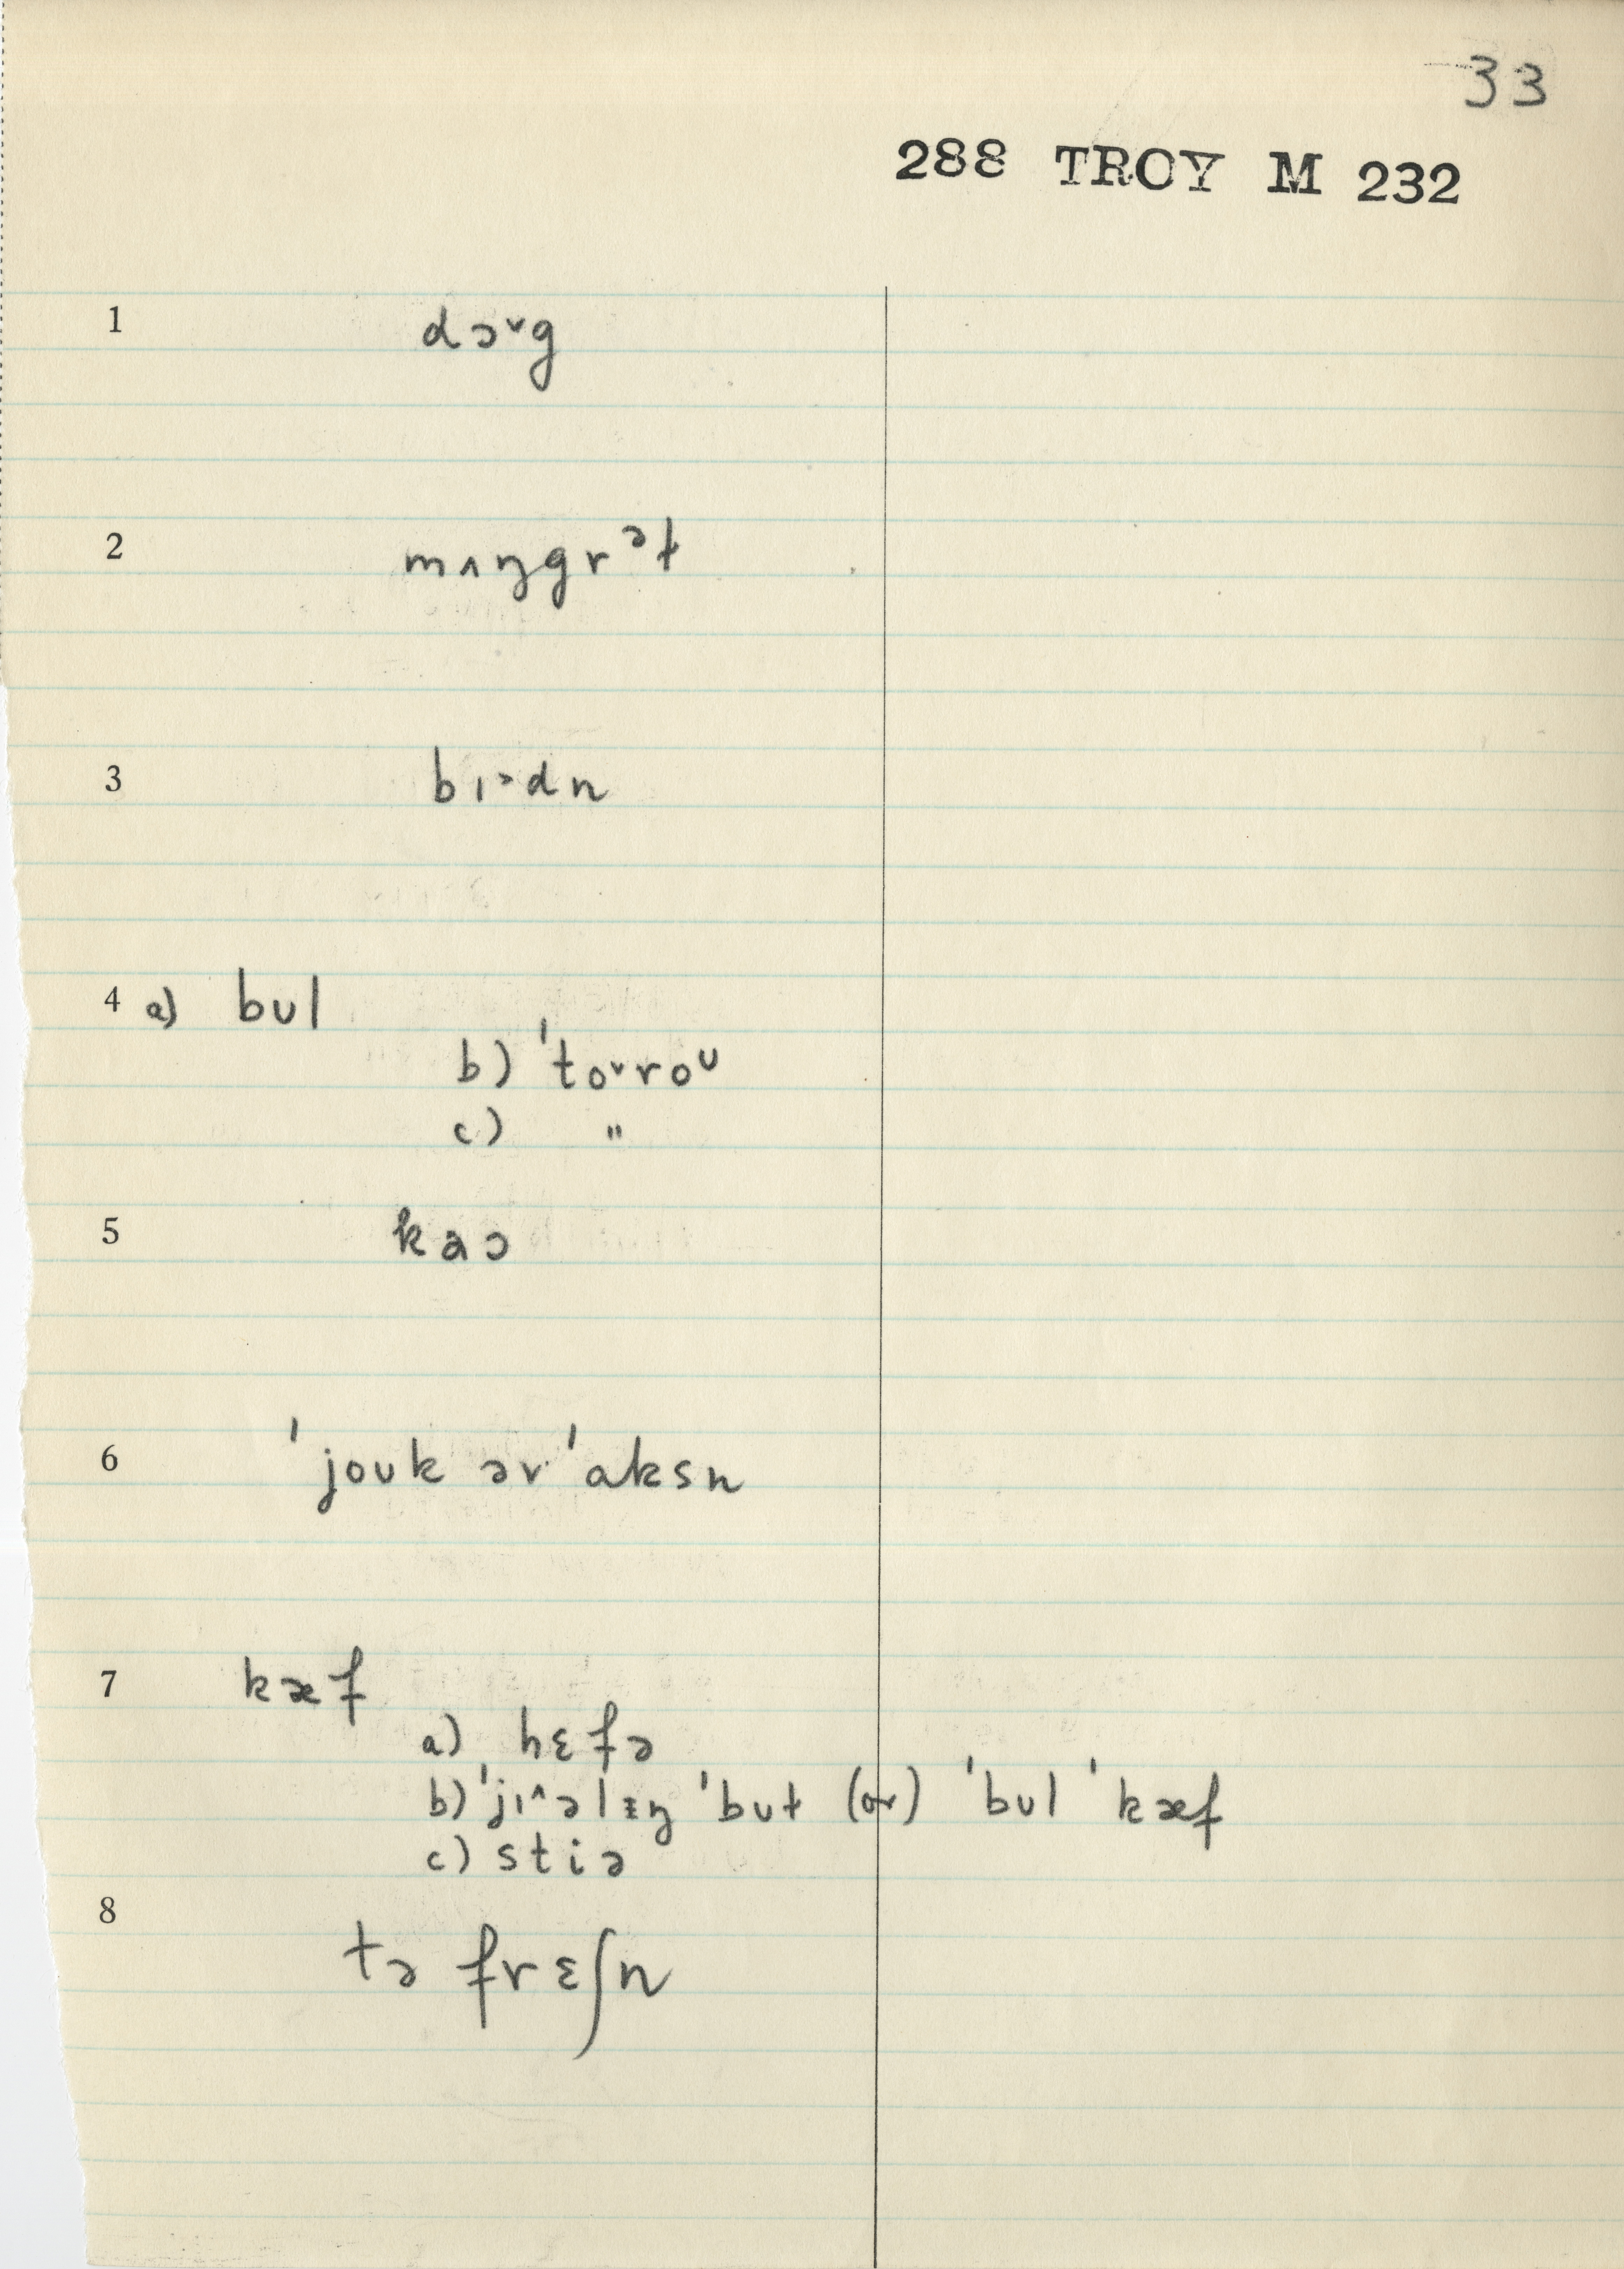 33
288 TROY M 232
1 dɔ˅g
2 mʌŋgrᵊɫ
3 bɪ˃dn
4 a) bʊl
b) ˈto˅roᶷ
c) "
5 kaɔ
6 ˈjoʊk ərˈaksn
7 kæf
a) hɛfə
b) ˈjɪ^əlɪŋ ˈbʊɫ (or) ˈbʊl ˈkæf
c) stiə
8 tə frɛʃn